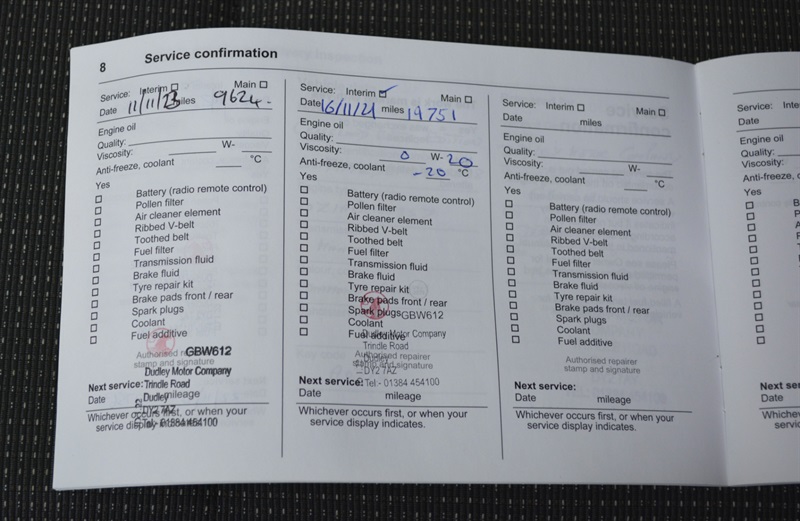 8 Service confirmation
Service: Interim Main
Date 11/11/23 miles 9624.
Engine oil
Quality: W-
Viscosity:
Anti-freeze, coolant °C
Yes
Battery (radio remote control)
Pollen filter
Air cleaner element
Ribbed V-belt
Toothed belt
Fuel filter
Transmission fluid
Brake fluid
Tyre repair kit
Brake pads front / rear
Spark plugs
Coolant
Fuel additive
GBW612
Authorised repairer
stamp and signature
Dudley Motor Company
Trindle Road
Dudley
DY2 7AZ
Tel - 01384 454100
Next service:
Date mileage
Whichever occurs first, or when your
service display indicates.
Service: Interim ✓ Main
Date 16/11/21 miles 19751
Engine oil
Quality:
Viscosity: 0 W- 20
Anti-freeze, coolant -20 °C
Yes
Battery (radio remote control)
Pollen filter
Air cleaner element
Ribbed V-belt
Toothed belt
Fuel filter
Transmission fluid
Brake fluid
Tyre repair kit
Brake pads front / rear
Spark plugs
GBW612
Coolant
Fuel additive
Dudley Motor Company
Trindle Road
Authorised repairer
Dudley
stamp and signature
DY2 7AZ
Next service: Tel - 01384 454100
Date mileage
Whichever occurs first, or when your
service display indicates.
Service: Interim Main
Date miles
Engine oil
Quality:
Viscosity: W-
Anti-freeze, coolant °C
Yes
Battery (radio remote control)
Pollen filter
Air cleaner element
Ribbed V-belt
Toothed belt
Fuel filter
Transmission fluid
Brake fluid
Tyre repair kit
Brake pads front / rear
Spark plugs
Coolant
Fuel additive
Authorised repairer
stamp and signature
Next service:
Date mileage
Whichever occurs first, or when your
service display indicates.
Service: Inte
Date
Engine oil
Quality:
Viscosity:
Anti-freeze, c
Yes
Next se
Date
Whiche
servic